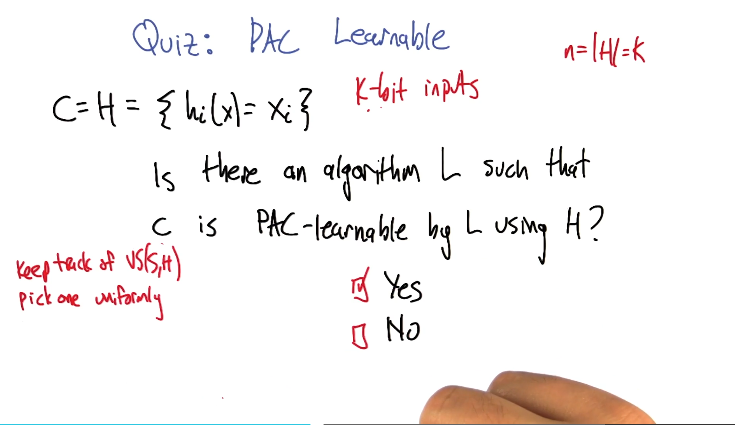 Quiz: PAC Learnable
n=|H|=K
C=H = { hi(x)= xi }
K-bit inputs
Is there an algorithm L such that
C is PAC-learnable by L using H?
Keep track of VS(S,H)
pick one uniformly
Yes
No